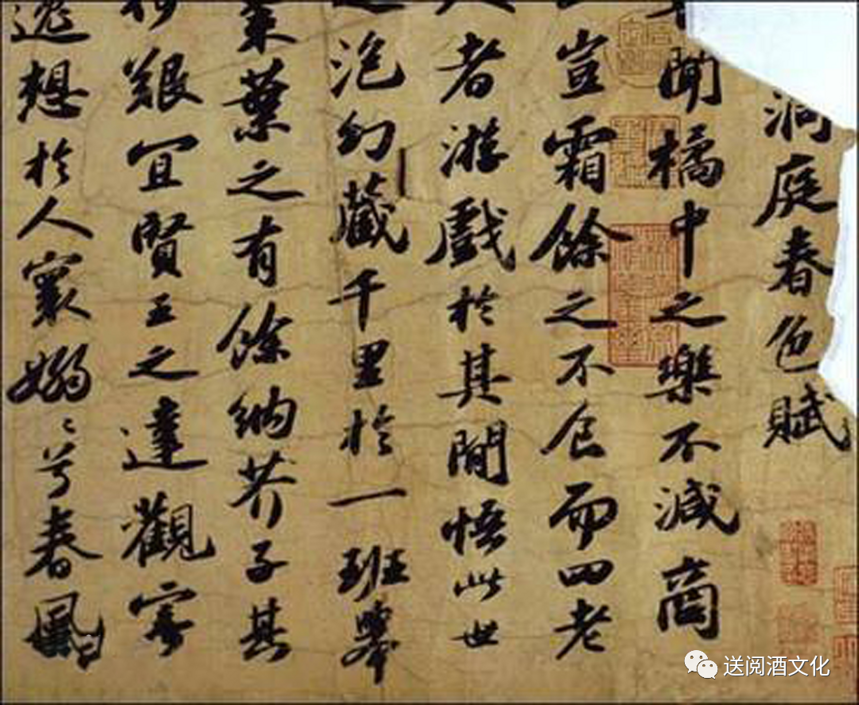 洞庭春色賦
聞橘中之樂不減商
豈霜餘之不食而四老
人者游戲於其間悟此世
之泡幻藏千里於一班舉
棗葉之有餘納芥子其
何艱宜賢王之達觀寄
逸想於人寰嫋〻兮春風
送阅酒文化